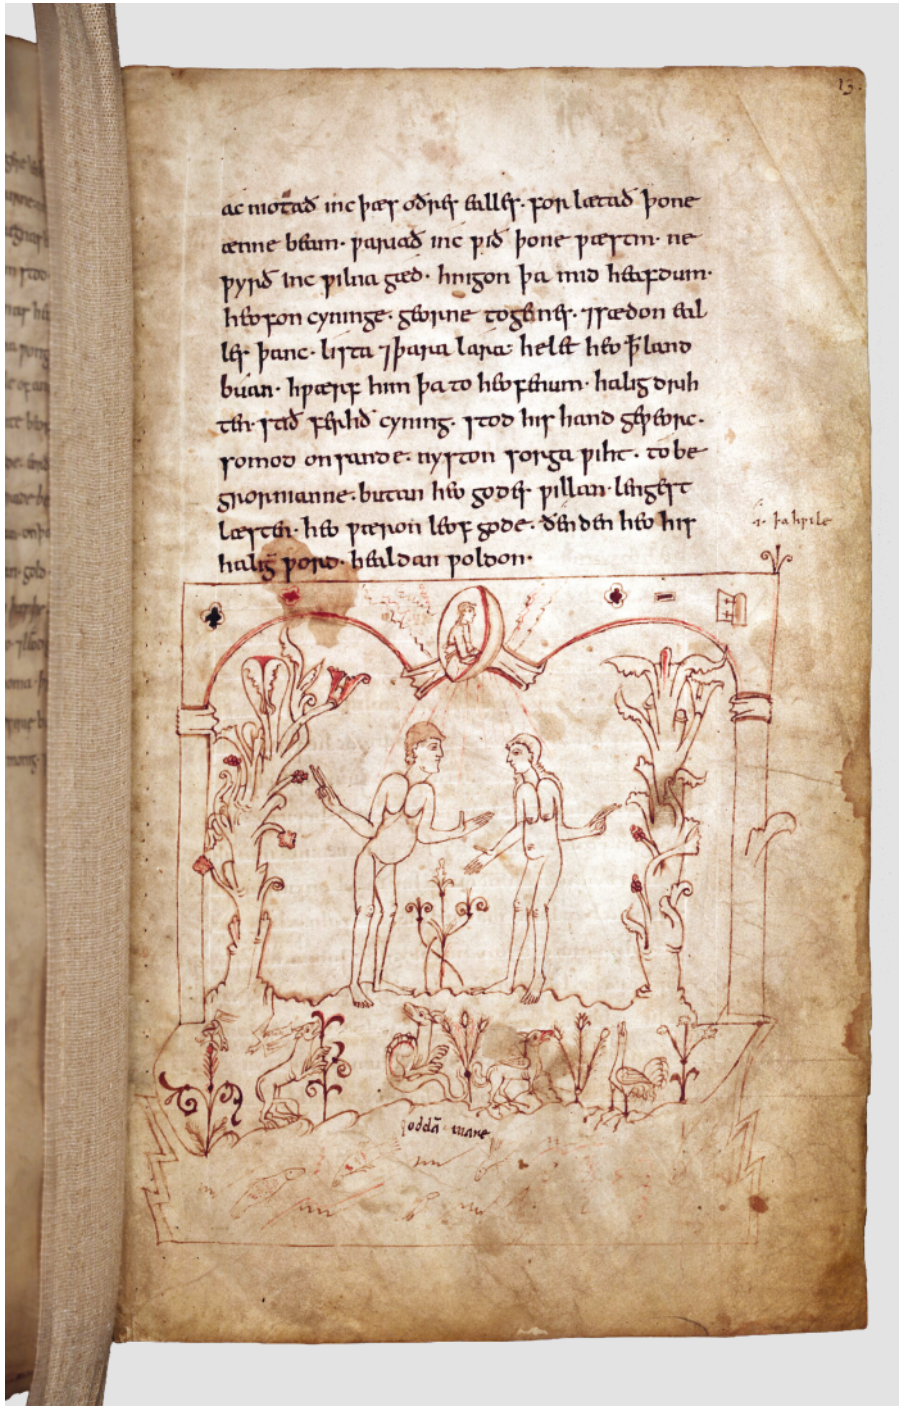 13.
ac niotað inc þæs oðres ealles. for lætað þone
ænne beam. ƿariað inc ƿið þone ƿæstm. ne
ƿyrð inc ƿilna gæd. hnigon þa mid heafdum.
heofon cyninge. georne togenes. ⁊ sædon eal
les þanc. lista ⁊ þara lara. he let heo ꝥ land
buan. hƿærf him þa to heofenum. halig drih
ten. stið ferhð cyning. stod his hand geƿeorc.
somod on sande. nyston sorga ƿiht. to be
grornianne. butan heo godes ƿillan. lengest
læsten. heo ƿæron leof gode. ðenden heo his
.i. þa hƿile
halig ƿord. healdan ƿoldon.